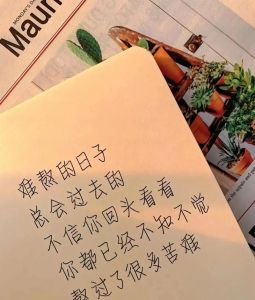 MONDAY'S
Mauri
难熬的日子
总会过去的
不信你回头看看
你都已经不知不觉
熬过了很多苦难